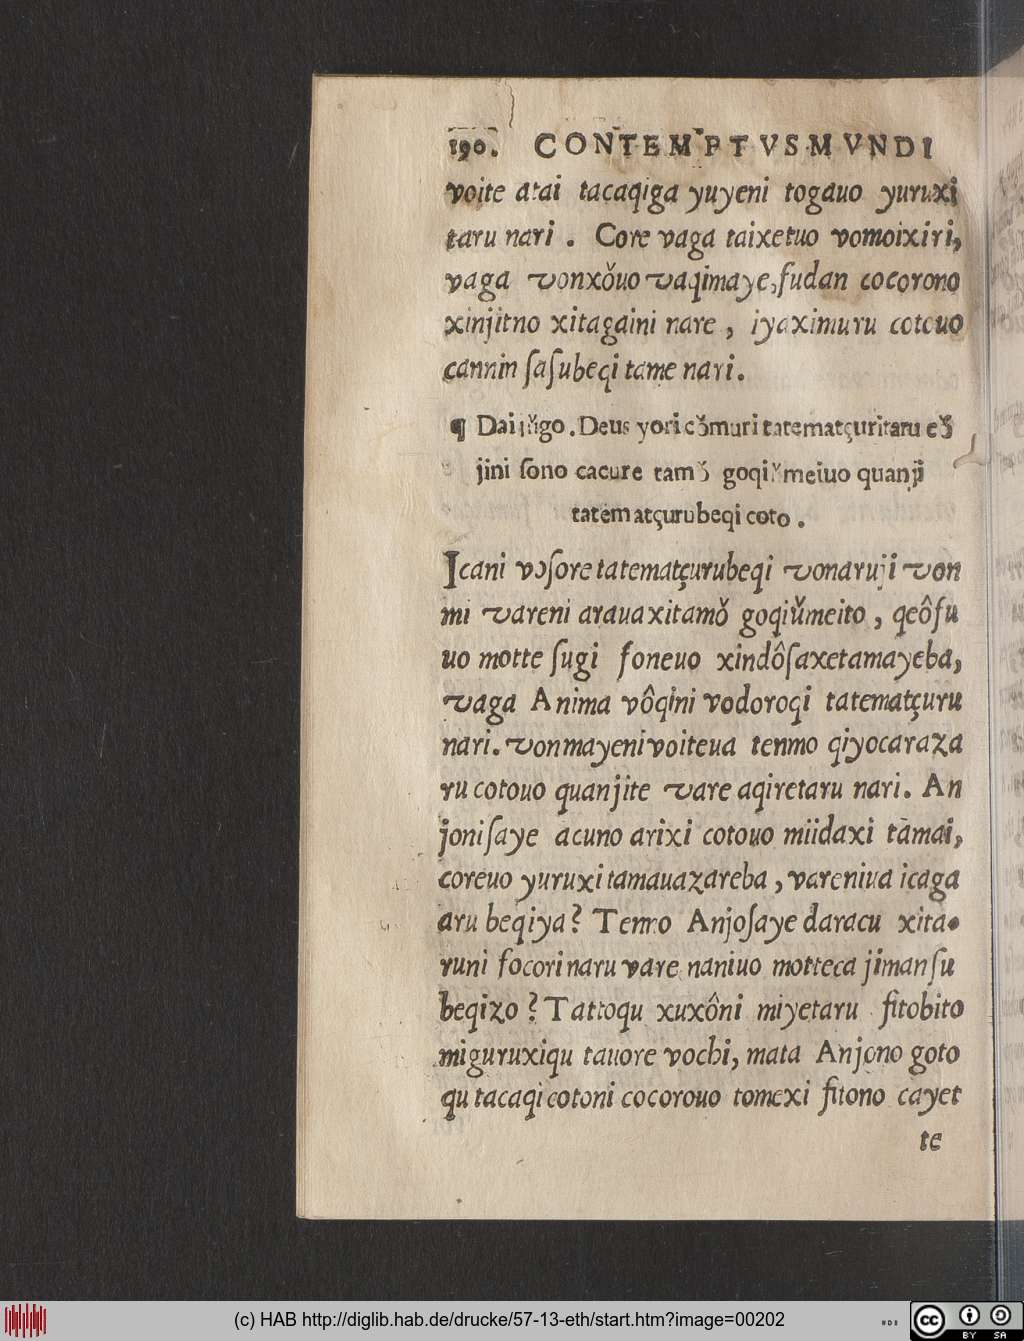 190. CONTEMPTVS MVNDI
voite atai tacaqiga yuyeni togauo yuruxi
taru nari . Core vaga taixetuo vomoixiri,
vaga vonxǒuo vaqimaye, ſudan cocorono
xinjitno xitagaini nare , iyaximuru cotouo
cannin ſaſubeqi tame nari.
¶ Dai Deus yori cǒmuri tatematçuritaru
jini ſono cacure tamǒ goqiǔmeiuo quanji
tatematçurubeqi coto .
Icani voſore tatematçurubeqi vonaruji von
mi vareni arauaxitamǒ goqiǔmeito , qeôfu
uo motte ſugi foneuo xindôſaxetamayeba,
vaga Anima vôqini vodoroqi tatematçuru
nari. vonmayeni voiteua tenmo qiyocaraza
ru cotouo quanjite vare aqiretaru nari. An
joni ſaye acuno arixi cotouo miidaxi tamai,
coreuo yuruxi tamauazareba , vareniua icaga
aru beqiya? Tenno Anjoſaye daracu xita-
runi focori naru vare naniuo motteca jimanſu
beqizo ? Tattoqu xuxôni miyetaru fitobito
miguruxiqu tauore vochi, mata Anjono goto
qu tacaqi cotoni cocorouo tomexi fitono cayet
te
(c) HAB http://diglib.hab.de/drucke/57-13-eth/start.htm?image=00202
cc BY SA